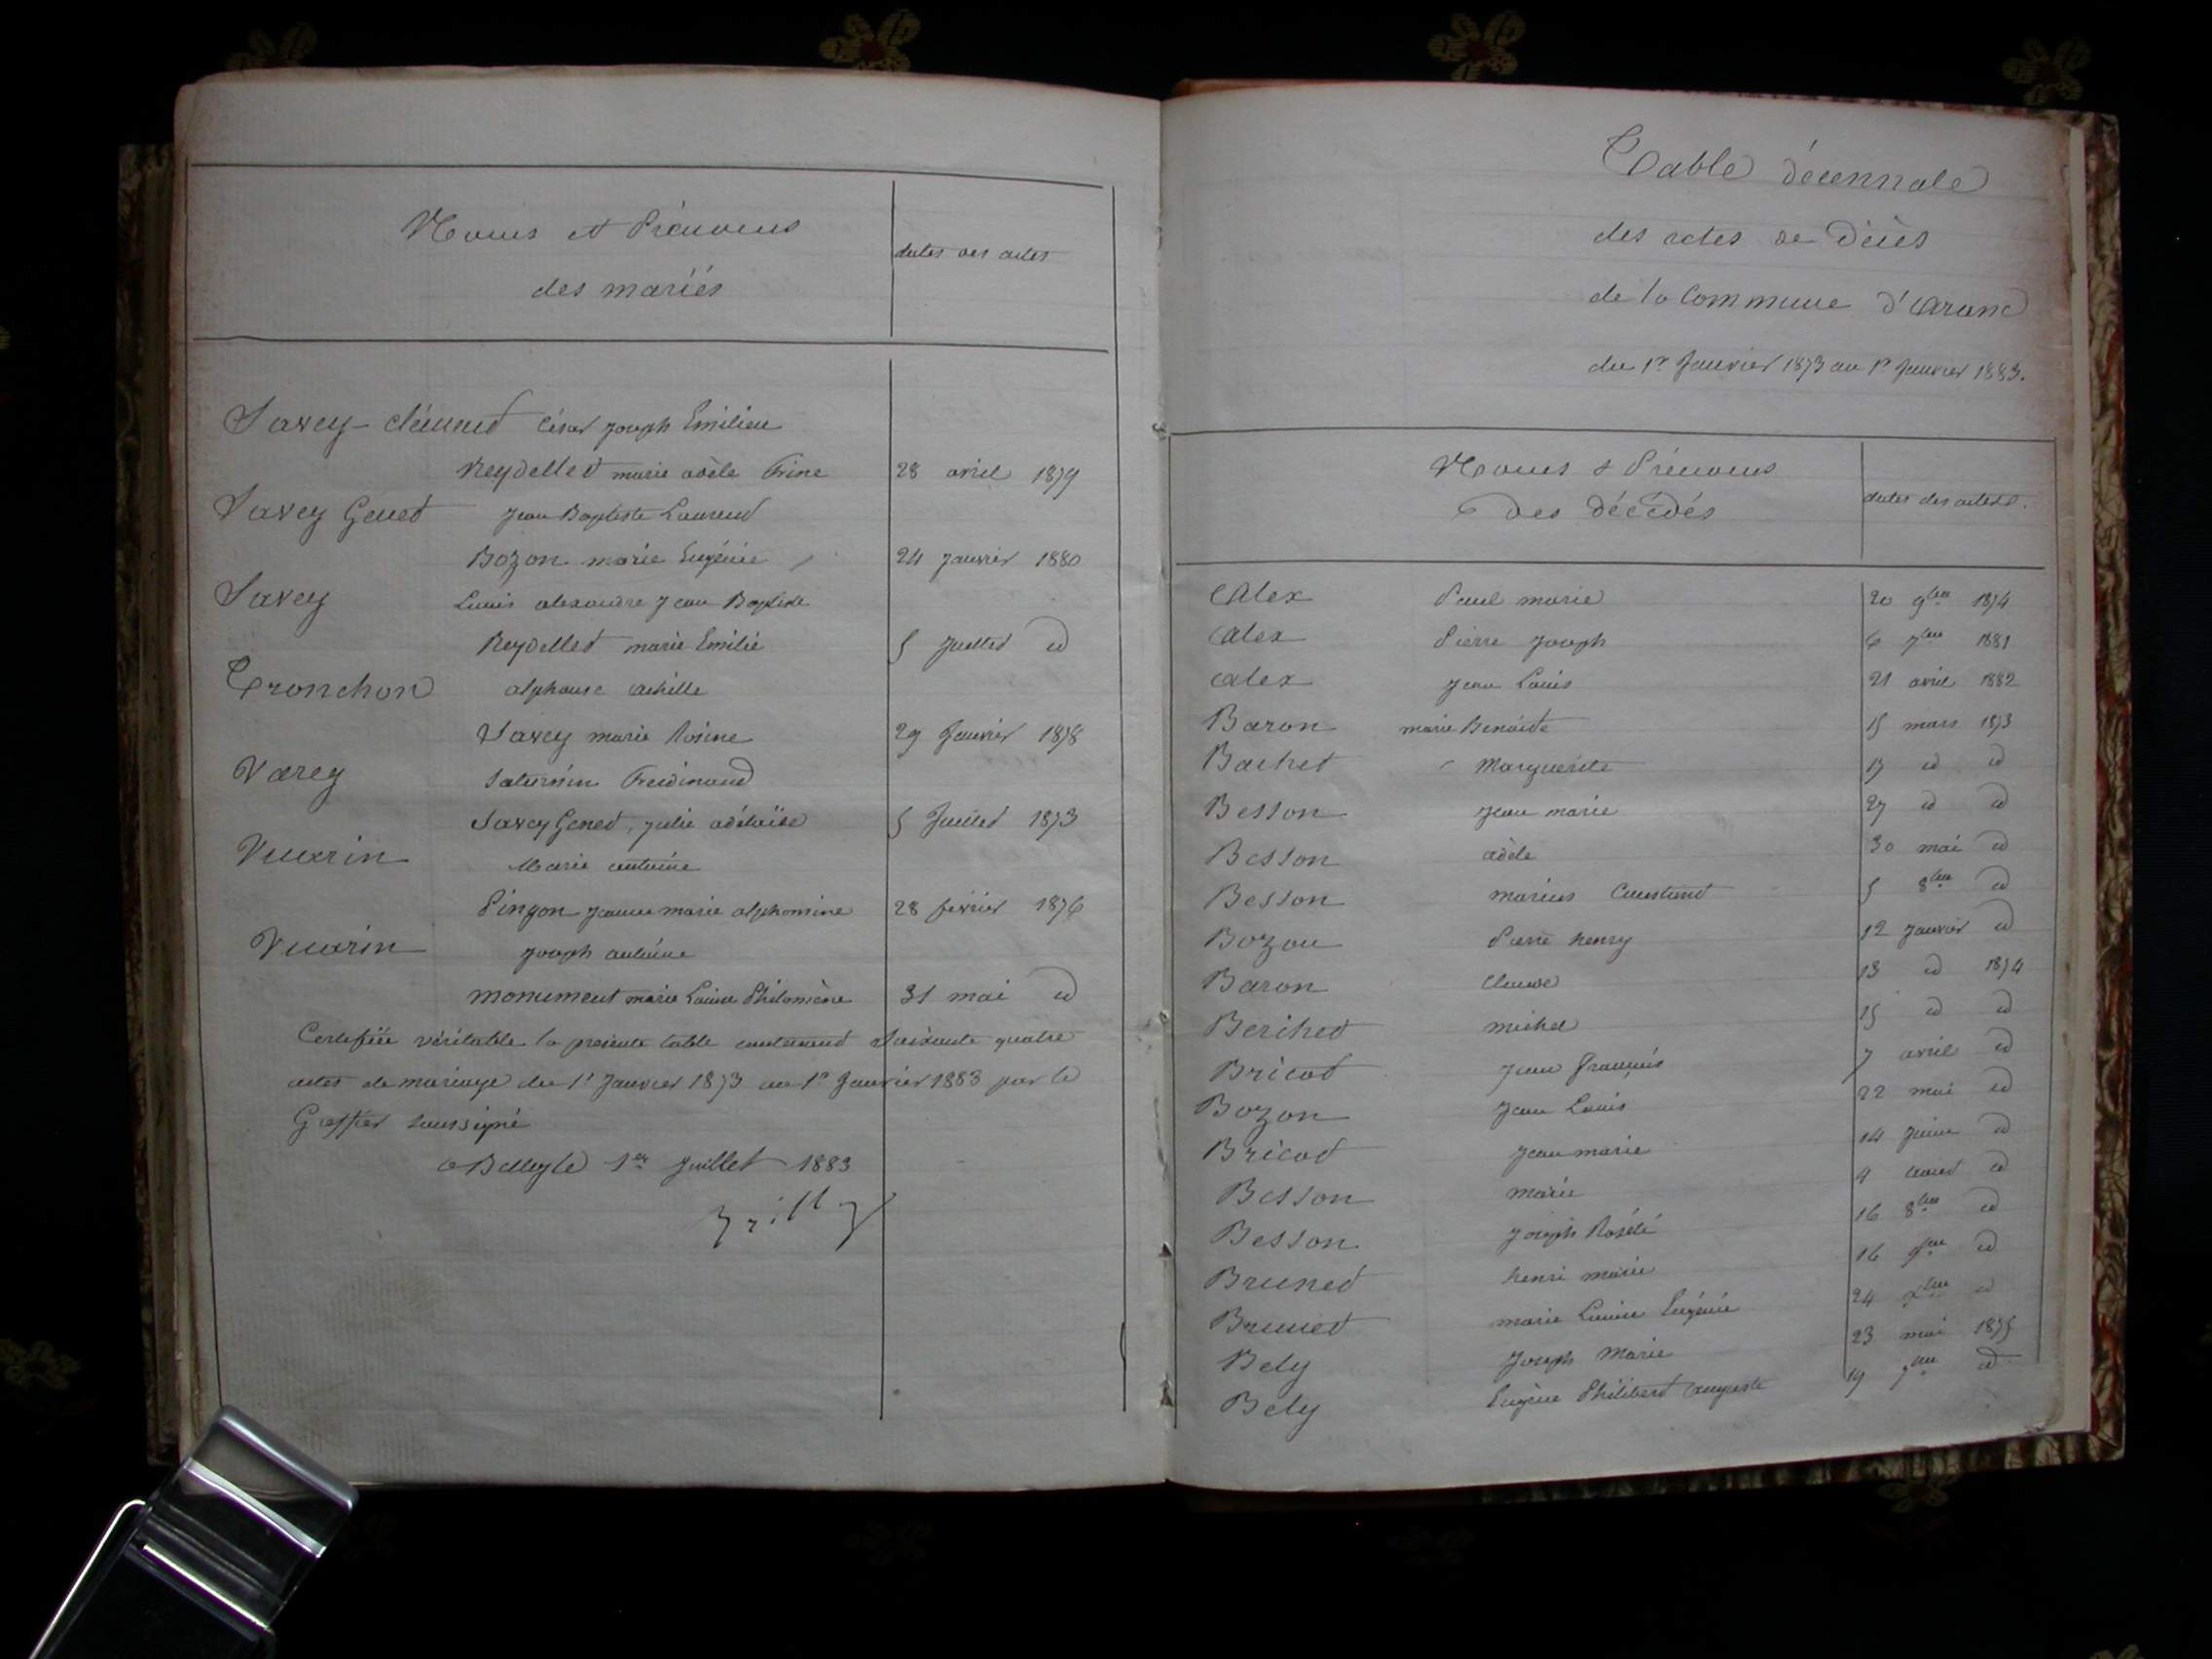 Noms et Prénoms
des mariés
dates des actes
Savey-Clément César Joseph Emilien
Reydellet marie adèle Irine
28 avril 1879
Savey Genet Jean Baptiste Laurent
Bozon marie Eugénie
24 Janvier 1880
Savey Louis alexandre Jean Baptiste
Reydellet marie Emilie
5 Juillet id
Tronchon alphonse achille
Savey marie Rosine
29 Janvier 1878
Varey Saturnin Ferdinand
Savey Genet, Julie adélaïde
5 Juillet 1873
Vuarin Marie antoine
Pingon Jeanne marie alphonsine
28 février 1876
Vuarin Joseph antoine
monument marie Louise Philomène
31 mai id
Certifiée véritable la présente table contenant Soixante quatre
actes de mariage du 1r Janvier 1873 au 1r Janvier 1883 par le
Greffier soussigné
a Belley le 1er Juillet 1883
Table décennale
des actes de Décès
de la Commune d'Aranc
du 1r Janvier 1873 au 1r Janvier 1883.
Noms & Prénoms
des décédés
dates des actes.
Alex Paul marie 20 9bre 1874
Alex Pierre Joseph 6 7bre 1881
Alex Jean Louis 21 avril 1882
Baron marie Benoite 15 mars 1873
Bachet Marguerite 17 id id
Besson Jean marie 27 id id
Besson adèle 30 mai id
Besson marius Constant 5 8bre id
Bozon Pierre henry 12 Janvier id
Baron Claude 13 id 1874
Berchet michel 15 id id
Bricod Jean François 7 avril id
Bozon Jean Louis 22 mai id
Bricod Jean marie 14 Juin id
Besson marie 9 aout id
Besson Joseph 16 8bre id
Brunet henri marie 16 9bre id
Brunet marie Louise Eugénie 24 xbre id
Bely Joseph Marie 23 mai 1875
Bely Eugène Philibert auguste 19 7bre id